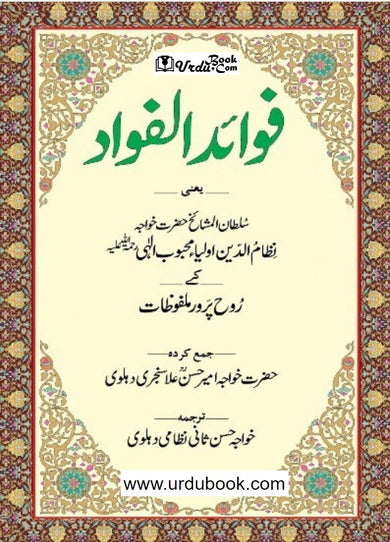 Book
Urdu Com
فوائد الفواد
یعنی
سلطان المشائخ حضرت خواجہ
نظام الدین اولیاء محبوب الٰہی رحمۃ اللہ علیہ
کے
روح پرور ملفوظات
جمع کردہ
حضرت خواجہ امیر حسن علا سنجری دہلوی
ترجمہ
خواجہ حسن ثانی نظامی دہلوی
www.urdubook.com